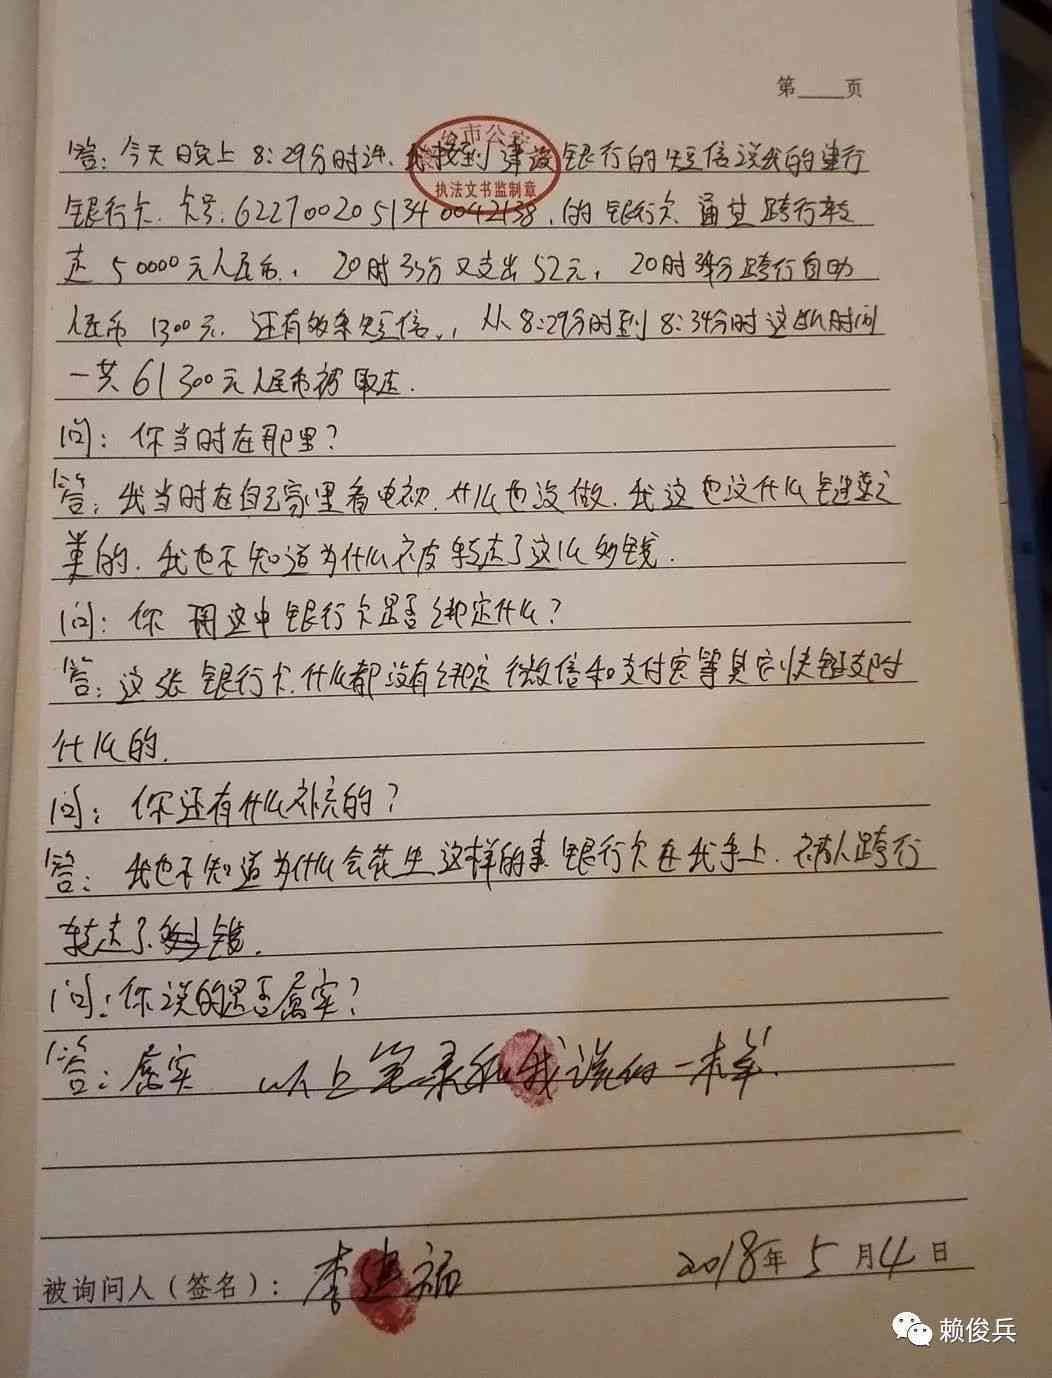 第____页
答：今天晚上8:29分时许.我接到建设银行的短信说我的建行
银行卡.卡号:6227002051340042138.的银行卡.通过跨行转
走50000元人民币., 20时33分又支出52元, 20时34分跨行自助
人民币1300元.还有多条短信., 从8:29分时到8:34分时这段时间
一共61300元人民币被取走.
问：你当时在那里？
答：我当时在自己家里看电视.什么也没做.我这也没什么链接之
类的.我也不知道为什么被转走了这么多钱.
问：你用这中银行卡是否绑定什么？
答：这张银行卡.什么都没有绑定微信和支付宝等其它快链支付
什么的.
问：你还有什么补充的？
答：我也不知道为什么会花生这样的事.银行卡在我手上.被人跨行
转走了多钱.
问：你说的是否属实？
答：属实 以上笔录和我说的一样.
被询问人（签名）：李建福 2018年5月4日
市公安
执法文书监制章
赖俊兵